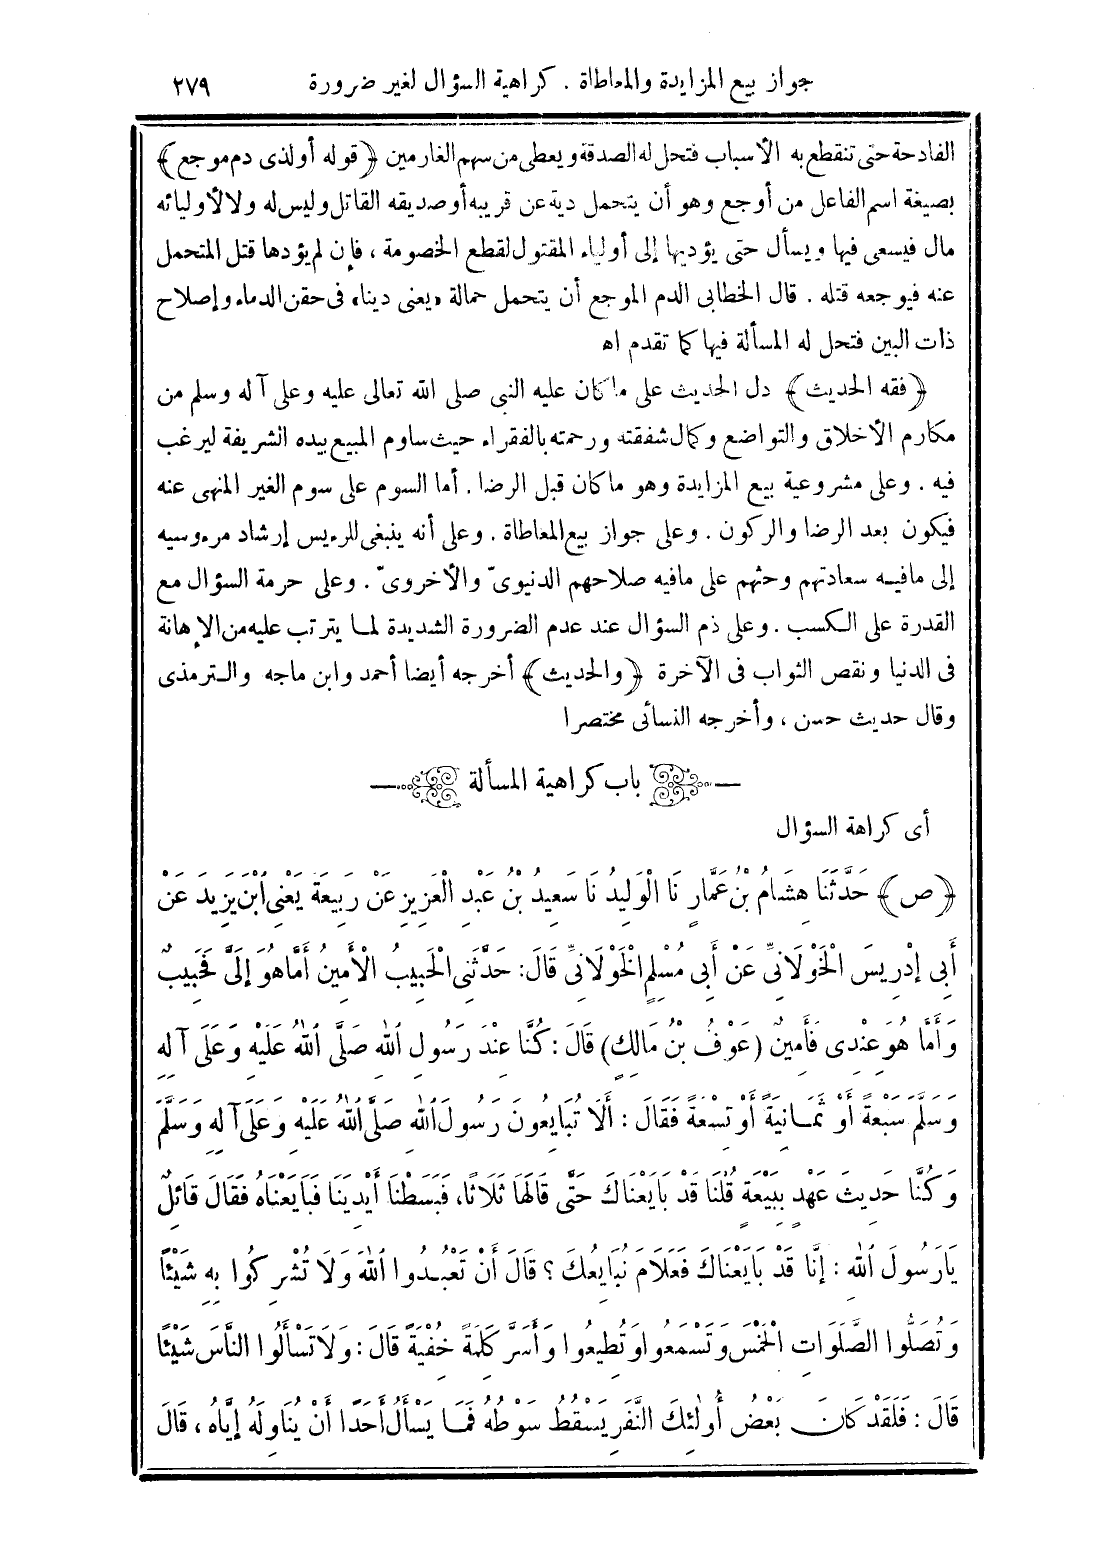 جواز بيع المزايدة والمعاطاة . كراهية السؤال لغير ضرورة ٢٧٩
الفادحة حتى تنقطع به الأسباب فتحل له الصدقة ويعطى من سهم الغارمين ﴿قوله أو لذى دم موجع﴾
بصيغة اسم الفاعل من أوجع وهو أن يتحمل دية عن قريبه أو صديقه القاتل وليس له ولا لأوليائه
مال فيسعى فيها ويسأل حتى يؤديها إلى أولياء المقتول لقطع الخصومة ، فإن لم يؤدها قتل المتحمل
عنه فيوجعه قتله . قال الخطابى الدم الموجع أن يتحمل حمالة «يعنى دينا» فى حقن الدماء وإصلاح
ذات البين فتحل له المسألة فيها كما تقدم اه
﴿فقه الحديث﴾ دل الحديث على ماكان عليه النبى صلى الله تعالى عليه وعلى آله وسلم من
مكارم الأخلاق والتواضع وكمال شفقته ورحمته بالفقراء حيث ساوم المبيع بيده الشريفة ليرغب
فيه . وعلى مشروعية بيع المزايدة وهو ماكان قبل الرضا . أما السوم على سوم الغير المنهى عنه
فيكون بعد الرضا والركون . وعلى جواز بيع المعاطاة . وعلى أنه ينبغى للرءيس إرشاد مرءوسيه
إلى مافيه سعادتهم وحثهم على مافيه صلاحهم الدنيوىّ والأخروىّ . وعلى حرمة السؤال مع
القدرة على الكسب . وعلى ذم السؤال عند عدم الضرورة الشديدة لما يترتب عليه من الإهانة
فى الدنيا ونقص الثواب فى الآخرة ﴿والحديث﴾ أخرجه أيضا أحمد وابن ماجه والترمذى
وقال حديث حسن ، وأخرجه النسائى مختصرا
باب كراهية المسألة
أى كراهة السؤال
﴿ص﴾ حَدَّثَنَا هِشَامُ بْنُ عَمَّارٍ نَا الْوَلِيدُ نَا سَعِيدُ بْنُ عَبْدِ الْعَزِيزِ عَنْ رَبِيعَةَ يَعْنِى ابْنَ يَزِيدَ عَنْ
أَبِى إِدْرِيسَ الْخَوْلَانِىِّ عَنْ أَبِى مُسْلِمٍ الْخَوْلَانِىِّ قَالَ: حَدَّثَنِى الْحَبِيبُ الْأَمِينُ أَمَّا هُوَ إِلَىَّ فَحَبِيبٌ
وَأَمَّا هُوَ عِنْدِى فَأَمِينٌ (عَوْفُ بْنُ مَالِكٍ) قَالَ : كُنَّا عِنْدَ رَسُولِ اللهِ صَلَّى اللهُ عَلَيْهِ وَعَلَى آلِهِ
وَسَلَّمَ سَبْعَةً أَوْ ثَمَانِيَةً أَوْ تِسْعَةً فَقَالَ : أَلَا تُبَايِعُونَ رَسُولَ اللهِ صَلَّى اللهُ عَلَيْهِ وَعَلَى آلِهِ وَسَلَّمَ
وَكُنَّا حَدِيثَ عَهْدٍ بِبَيْعَةٍ قُلْنَا قَدْ بَايَعْنَاكَ حَتَّى قَالَهَا ثَلَاثًا، فَبَسَطْنَا أَيْدِيَنَا فَبَايَعْنَاهُ فَقَالَ قَائِلٌ
يَارَسُولَ اللهِ : إِنَّا قَدْ بَايَعْنَاكَ فَعَلَامَ نُبَايِعُكَ ؟ قَالَ أَنْ تَعْبُدُوا اللهَ وَلَا تُشْرِكُوا بِهِ شَيْئًا
وَتُصَلُّوا الصَّلَوَاتِ الْخَمْسَ وَتَسْمَعُوا وَتُطِيعُوا وَأَسَرَّ كَلِمَةً خُفْيَةً قَالَ : وَلَا تَسْأَلُوا النَّاسَ شَيْئًا
قَالَ : فَلَقَدْ كَانَ بَعْضُ أُولَئِكَ النَّفَرِ يَسْقُطُ سَوْطُهُ فَمَا يَسْأَلُ أَحَدًا أَنْ يُنَاوِلَهُ إِيَّاهُ ، قَالَ